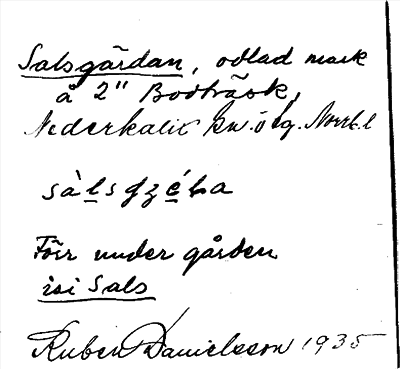 Salsgärdan, odlad mark
å 2" Bodträsk,
Nederkalix sn. ö lg. Norrb. l
Förr under gården
isi Sals
Ruben Danielsson 1935